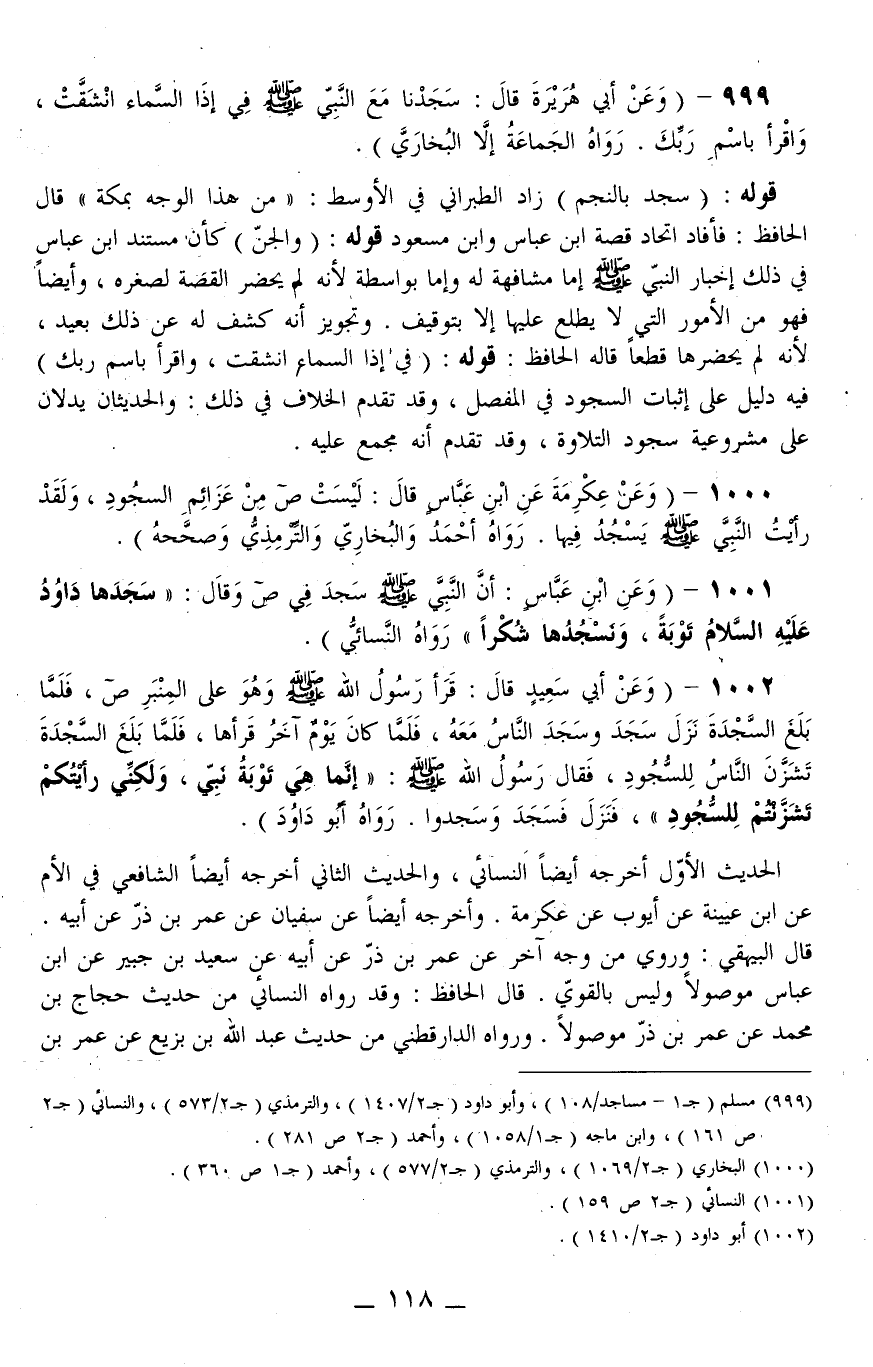 ٩٩٩ – ( وَعَنْ أبي هُرَيْرَةَ قالَ : سَجَدْنا مَعَ النَّبِيّ ﷺ فِي إذَا السَّماء انْشَقَّتْ ،
وَاقْرأ باسْمِ رَبِّكَ . رَوَاهُ الجَماعَةُ إلَّا البُخارَيَّ ) .
قوله : ( سجد بالنجم ) زاد الطبراني في الأوسط : « من هذا الوجه بمكة » قال
الحافظ : فأفاد اتحاد قصة ابن عباس وابن مسعود قوله : ( والجنّ ) كأن مستند ابن عباس
في ذلك إخبار النبيّ ﷺ إما مشافهة له وإما بواسطة لأنه لم يحضر القصة لصغره ، وأيضاً
فهو من الأمور التي لا يطلع عليها إلا بتوقيف . وتجويز أنه كشف له عن ذلك بعيد ،
لأنه لم يحضرها قطعاً قاله الحافظ : قوله : ( في إذا السماء انشقت ، واقرأ باسم ربك )
فيه دليل على إثبات السجود في المفصل ، وقد تقدم الخلاف في ذلك : والحديثان يدلان
على مشروعية سجود التلاوة ، وقد تقدم أنه مجمع عليه .
١٠٠٠ – ( وَعَنْ عِكْرِمَةَ عَنِ ابْنِ عَبَّاسٍ قالَ : لَيْسَتْ صَ مِنْ عَزَائِمِ السجُودِ ، وَلَقَدْ
رأيْتُ النَّبِيَّ ﷺ يَسْجُدُ فِيها . رَوَاهُ أحْمَدُ وَالبُخارِيّ وَالتِّرْمِذِيُّ وَصحَّحهُ ) .
١٠٠١ – ( وَعَنِ ابْنِ عَبَّاسٍ : أنَّ النَّبِيَّ ﷺ سَجدَ فِي صَ وَقاَل : « سَجَدَها دَاوُدُ
عَلَيْهِ السَّلامُ تَوْبَةً ، وَنَسْجُدُها شُكْراً » رَوَاهُ النَّسائيُّ ) .
١٠٠٢ – ( وَعَنْ أبي سَعِيدٍ قالَ : قَرَأ رَسُولُ الله ﷺ وَهُوَ على المِنْبَرِ صَ ، فَلَمَّا
بَلَغَ السَّجْدَةَ نَزَلَ سَجَدَ وسَجَدَ النَّاسُ مَعَهُ ، فَلَمَّا كانَ يَوْمٌ آخَرُ قَرأها ، فَلَمَّا بَلَغَ السَّجْدَةَ
تَشَزَّنَ النَّاسُ لِلسُّجُودِ ، فَقال رَسُولُ الله ﷺ : « إنَّما هِيَ تَوْبَةُ نَبِيّ ، وَلَكِنِّي رأيْتُكمْ
تَشَزَّنْتُمْ لِلسُّجُودِ » ، فَنَزَلَ فَسَجَدَ وَسَجدوا . رَوَاهُ أَبُو دَاوُدَ ) .
الحديث الأوّل أخرجه أيضاً النسائي ، والحديث الثاني أخرجه أيضاً الشافعي في الأم
عن ابن عيينة عن أيوب عن عكرمة . وأخرجه أيضاً عن سفيان عن عمر بن ذرّ عن أبيه .
قال البيهقي : وروي من وجه آخر عن عمر بن ذرّ عن أبيه عن سعيد بن جبير عن ابن
عباس موصولاً وليس بالقويّ . قال الحافظ : وقد رواه النسائي من حديث حجاج بن
محمد عن عمر بن ذرّ موصولاً . ورواه الدارقطني من حديث عبد الله بن بزيع عن عمر بن
(٩٩٩) مسلم ( جـ١ – مساجد/١٠٨ ) ، وأبو داود ( جـ١٤٠٧/٢ ) ، والترمذي ( جـ٥٧٣/٢ ) ، والنسائي ( جـ٢
ص ١٦١ ) ، وابن ماجه ( جـ١٠٥٨/١ ) ، وأحمد ( جـ٢ ص ٢٨١ ) .
(١٠٠٠) البخاري ( جـ١٠٦٩/٢ ) ، والترمذي ( جـ٥٧٧/٢ ) ، وأحمد ( جـ١ ص ٣٦٠ ) .
(١٠٠١) النسائي ( جـ٢ ص ١٥٩ ) .
(١٠٠٢) أبو داود ( جـ١٤١٠/٢ ) .
– ١١٨ –